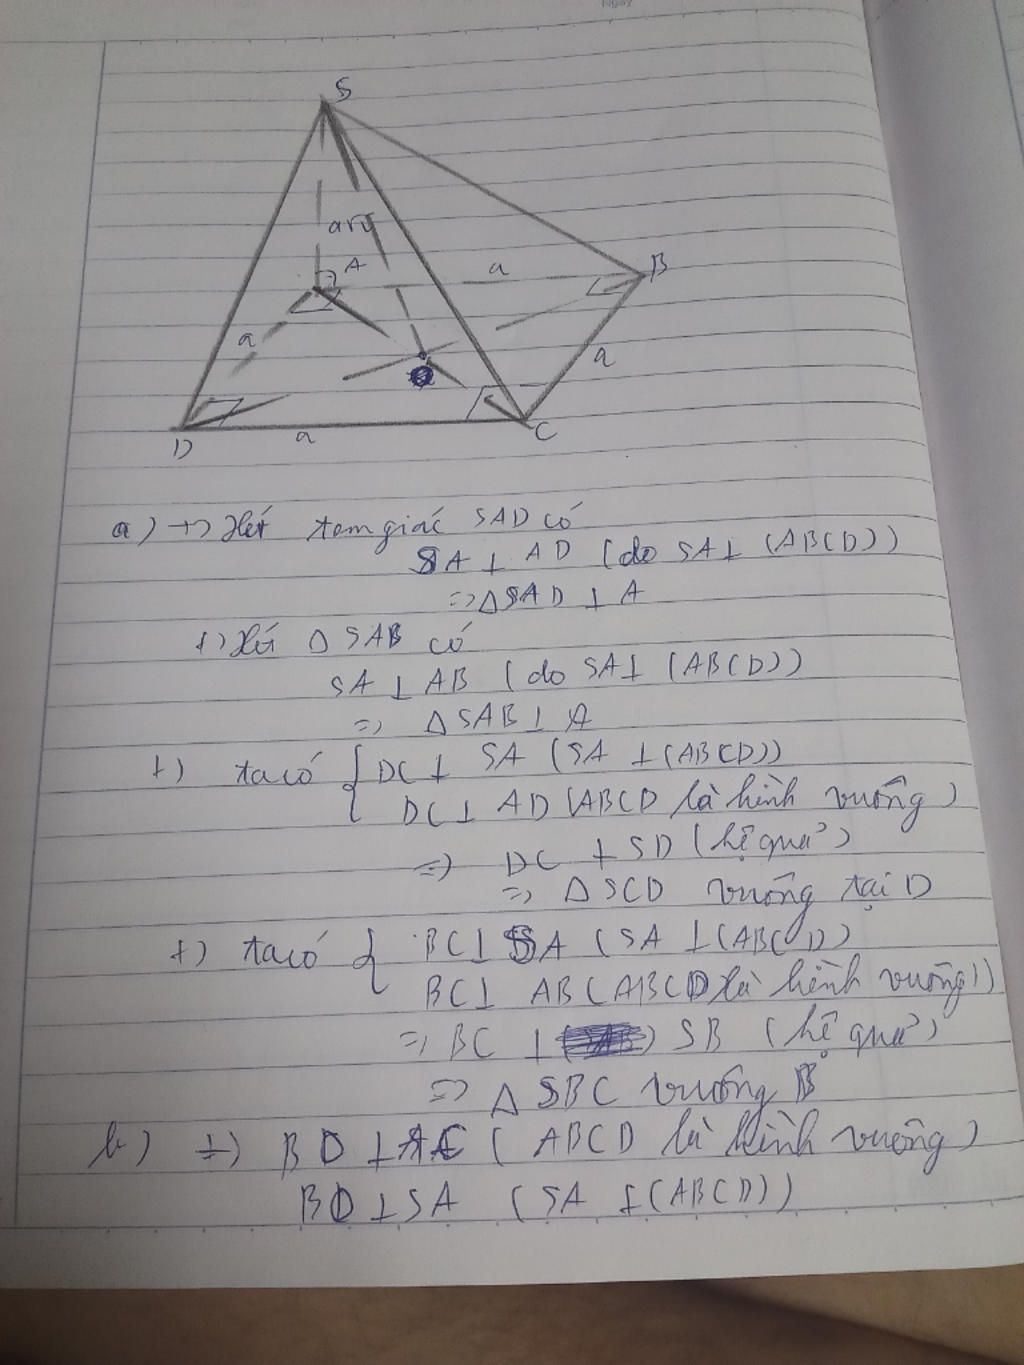 Ngày
S
a√2
A
a
B
a
a
D
a
C
a) +) Xét tam giác SAD có
SA ⊥ AD (do SA ⊥ (ABCD))
=> Δ SAD ⊥ A
+) Xét Δ SAB có
SA ⊥ AB (do SA ⊥ (ABCD))
=> Δ SAB ⊥ A
+) ta có { DC ⊥ SA (SA ⊥ (ABCD))
DC ⊥ AD (ABCD là hình vuông)
=> DC ⊥ SD (hệ quả)
=> Δ SCD vuông tại D
+) ta có { BC ⊥ SA (SA ⊥ (ABCD)
BC ⊥ AB (ABCD là hình vuông))
=> BC ⊥ SB (hệ quả)
=> Δ SBC vuông B
b) +) BD ⊥ AC (ABCD là hình vuông)
BD ⊥ SA (SA ⊥ (ABCD))